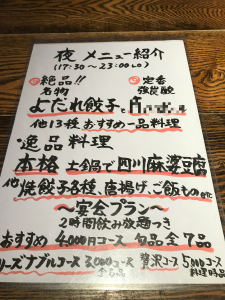 夜 メニュー紹介
(17:30～23:00 LO)
絶品!! 定番
名物 強炭酸
よだれ餃子と
他13種 おすすめ一品料理
逸品料理
本格 土鍋で四川麻婆豆腐
他 焼餃子各種、唐揚げ、ご飯もの etc
～宴会プラン～
2時間飲み放題つき
おすすめ 4,000円コース 旬品 全7品
リーズナブルコース 3,000コース 贅沢コース 5,000コース
全6品 料理8品